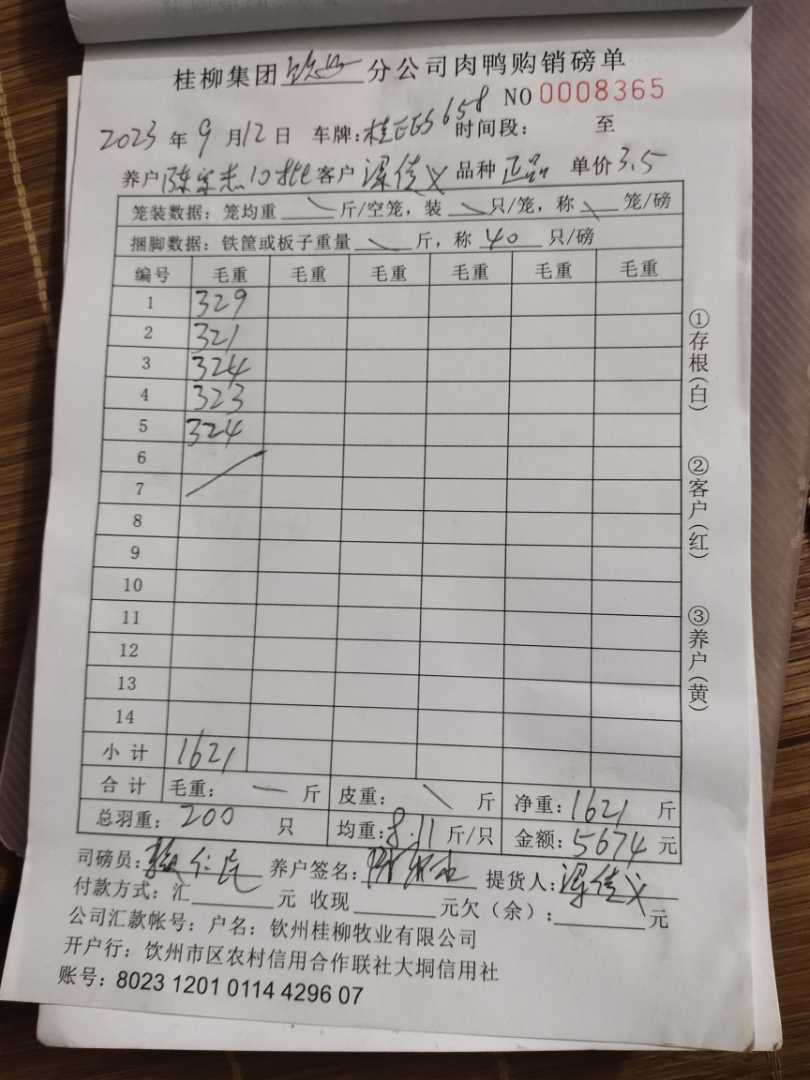 桂柳集团钦州分公司肉鸭购销磅单
NO 0008365
2023年9月12日 车牌:桂 658 时间段: 至
养户 陈 10批 客户 梁佳义 品种 正品 单价 3.5
笼装数据:笼均重 \ 斤/空笼,装 \ 只/笼,称 \ 笼/磅
捆脚数据:铁筐或板子重量 \ 斤,称 40 只/磅
编号 毛重 毛重 毛重 毛重 毛重 毛重
1 329
2 321
3 324
4 323
5 324
6
7
8
9
10
11
12
13
14
小计 1621
合计 毛重: — 斤 皮重: \ 斤 净重:1621 斤
总羽重: 200 只 均重:8.11 斤/只 金额:5674 元
司磅员: 仁民 养户签名: 提货人:梁佳义
付款方式:汇 元 收现 元欠(余): 元
公司汇款帐号:户名:钦州桂柳牧业有限公司
开户行:钦州市区农村信用合作联社大垌信用社
账号:8023 1201 0114 4296 07
①存根(白)
②客户(红)
③养户(黄)